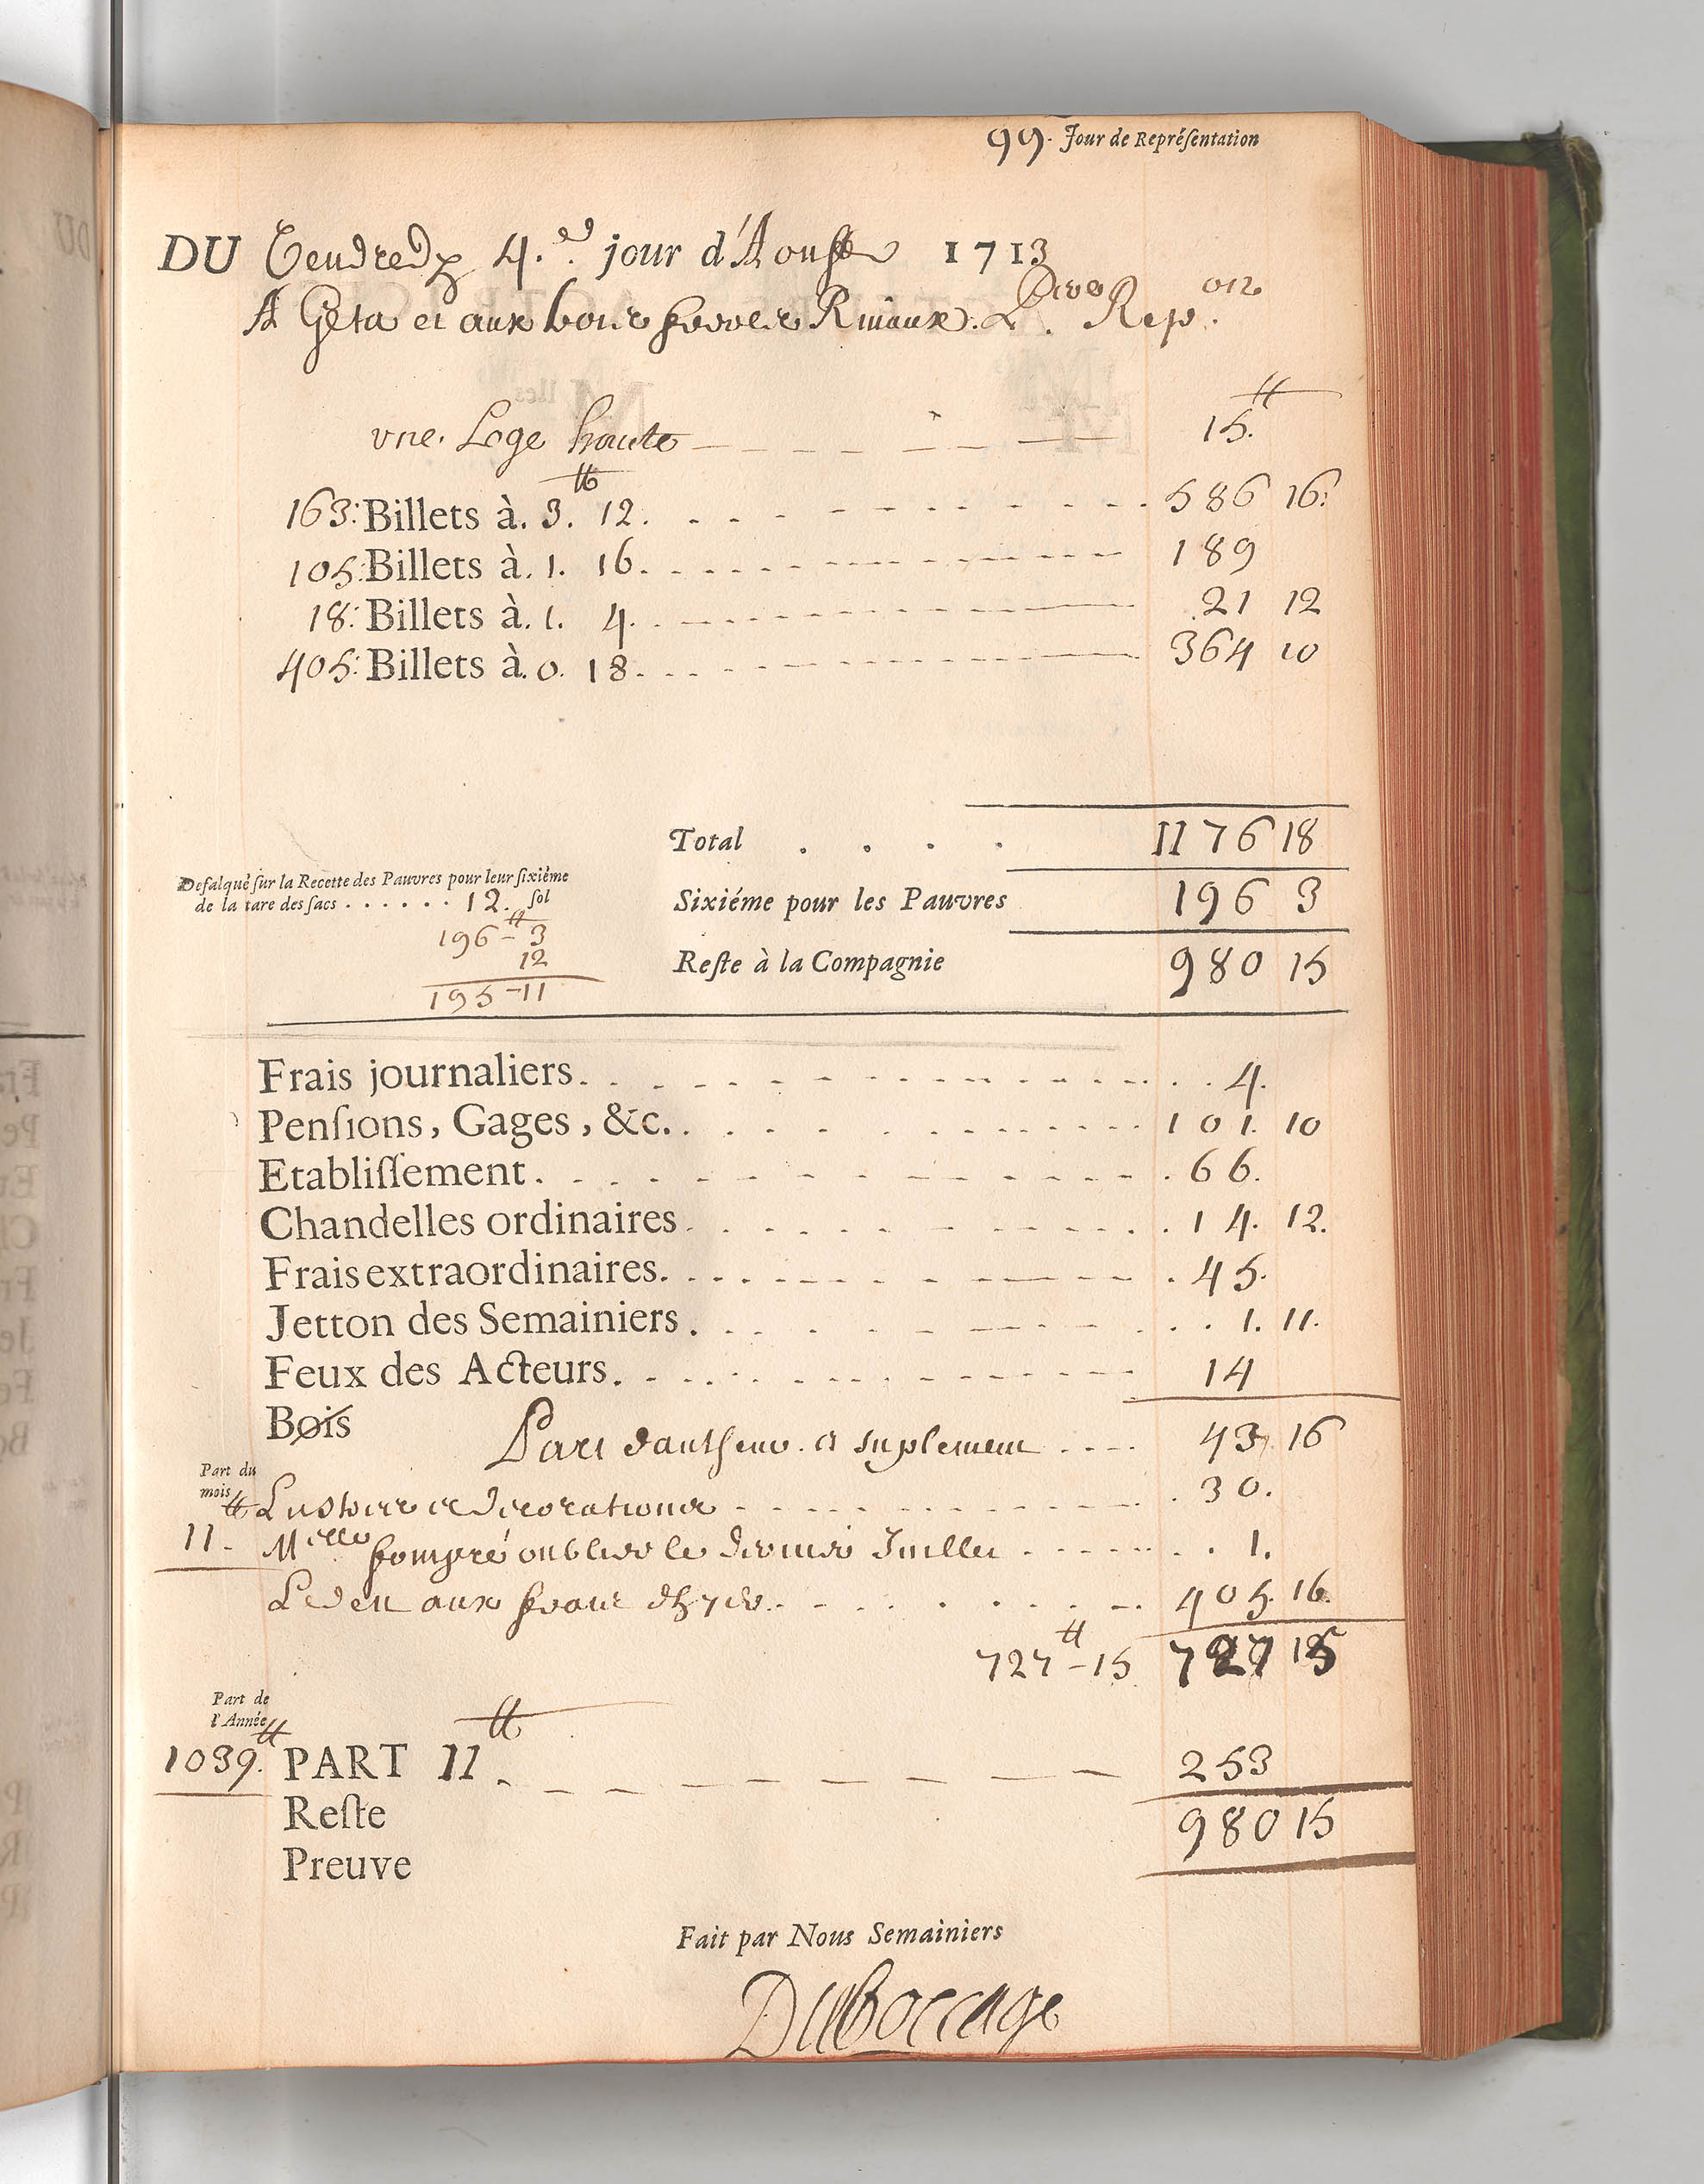 99. Jour de Repréſentation
DU Vendredy 4.e jour d'Aoust 1713
A Géta et aux trois freres Riuaux. P.re Rep.on
vne Loge haute 15.tt
163: Billets à. 3.tt 12. 586 16:
105: Billets à. 1. 16. 189
18: Billets à. 1. 4. 21 12
405: Billets à. 0. 18. 364 10
Total . . . . 1176 18
Defalqué ſur la Recette des Pauvres pour leur ſixiéme
de la tare des ſacs . . . . . . 12. ſol
Sixiéme pour les Pauvres 196 3
196tt - 3
12
Reſte à la Compagnie 980 15
195 - 11
Frais journaliers. 4.
Penſions, Gages, &c. 101. 10
Etabliſſement. 66.
Chandelles ordinaires. 14. 12.
Frais extraordinaires. 45.
Jetton des Semainiers. 1. 11.
Feux des Acteurs. 14
Bois
Part dautheur et suplement 43. 16
Part du
mois tt
Lustres et decorations 30.
11.
M.elle oubliée le dernier Juillet 1.
aux frais 405. 16.
727tt - 15 727 15
Part de
l'Année tt
1039. PART 11tt 253
Reſte 980 15
Preuve
Fait par Nous Semainiers
DuBoccage